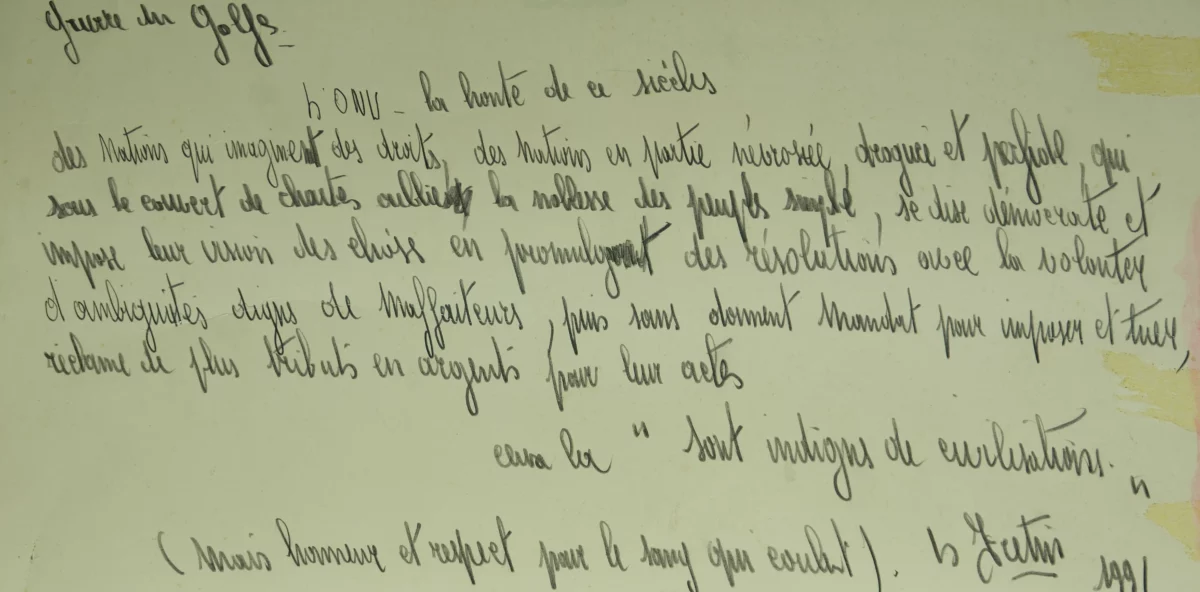 guerre du Golfe
L'ONU - la honte de ce siécles
des Nations qui imaginent des droits, des Nations en partie névrosée, droguée et perfide, qui
sous le couvert de chartes oublient la noblesse des peuples simple, se dise démocrate et
impose leur vision des chose en promulguant des résolutions avec la volonter
d'ambiguités digns de Malfaiteurs, puis sans donnent Mandat pour imposer et tuer,
réclame de plus tributs en argents pour leur actes
ceux la " sont indigns de civilisations. "
(Mais honneur et respect pour le sang qui coulait).
1991